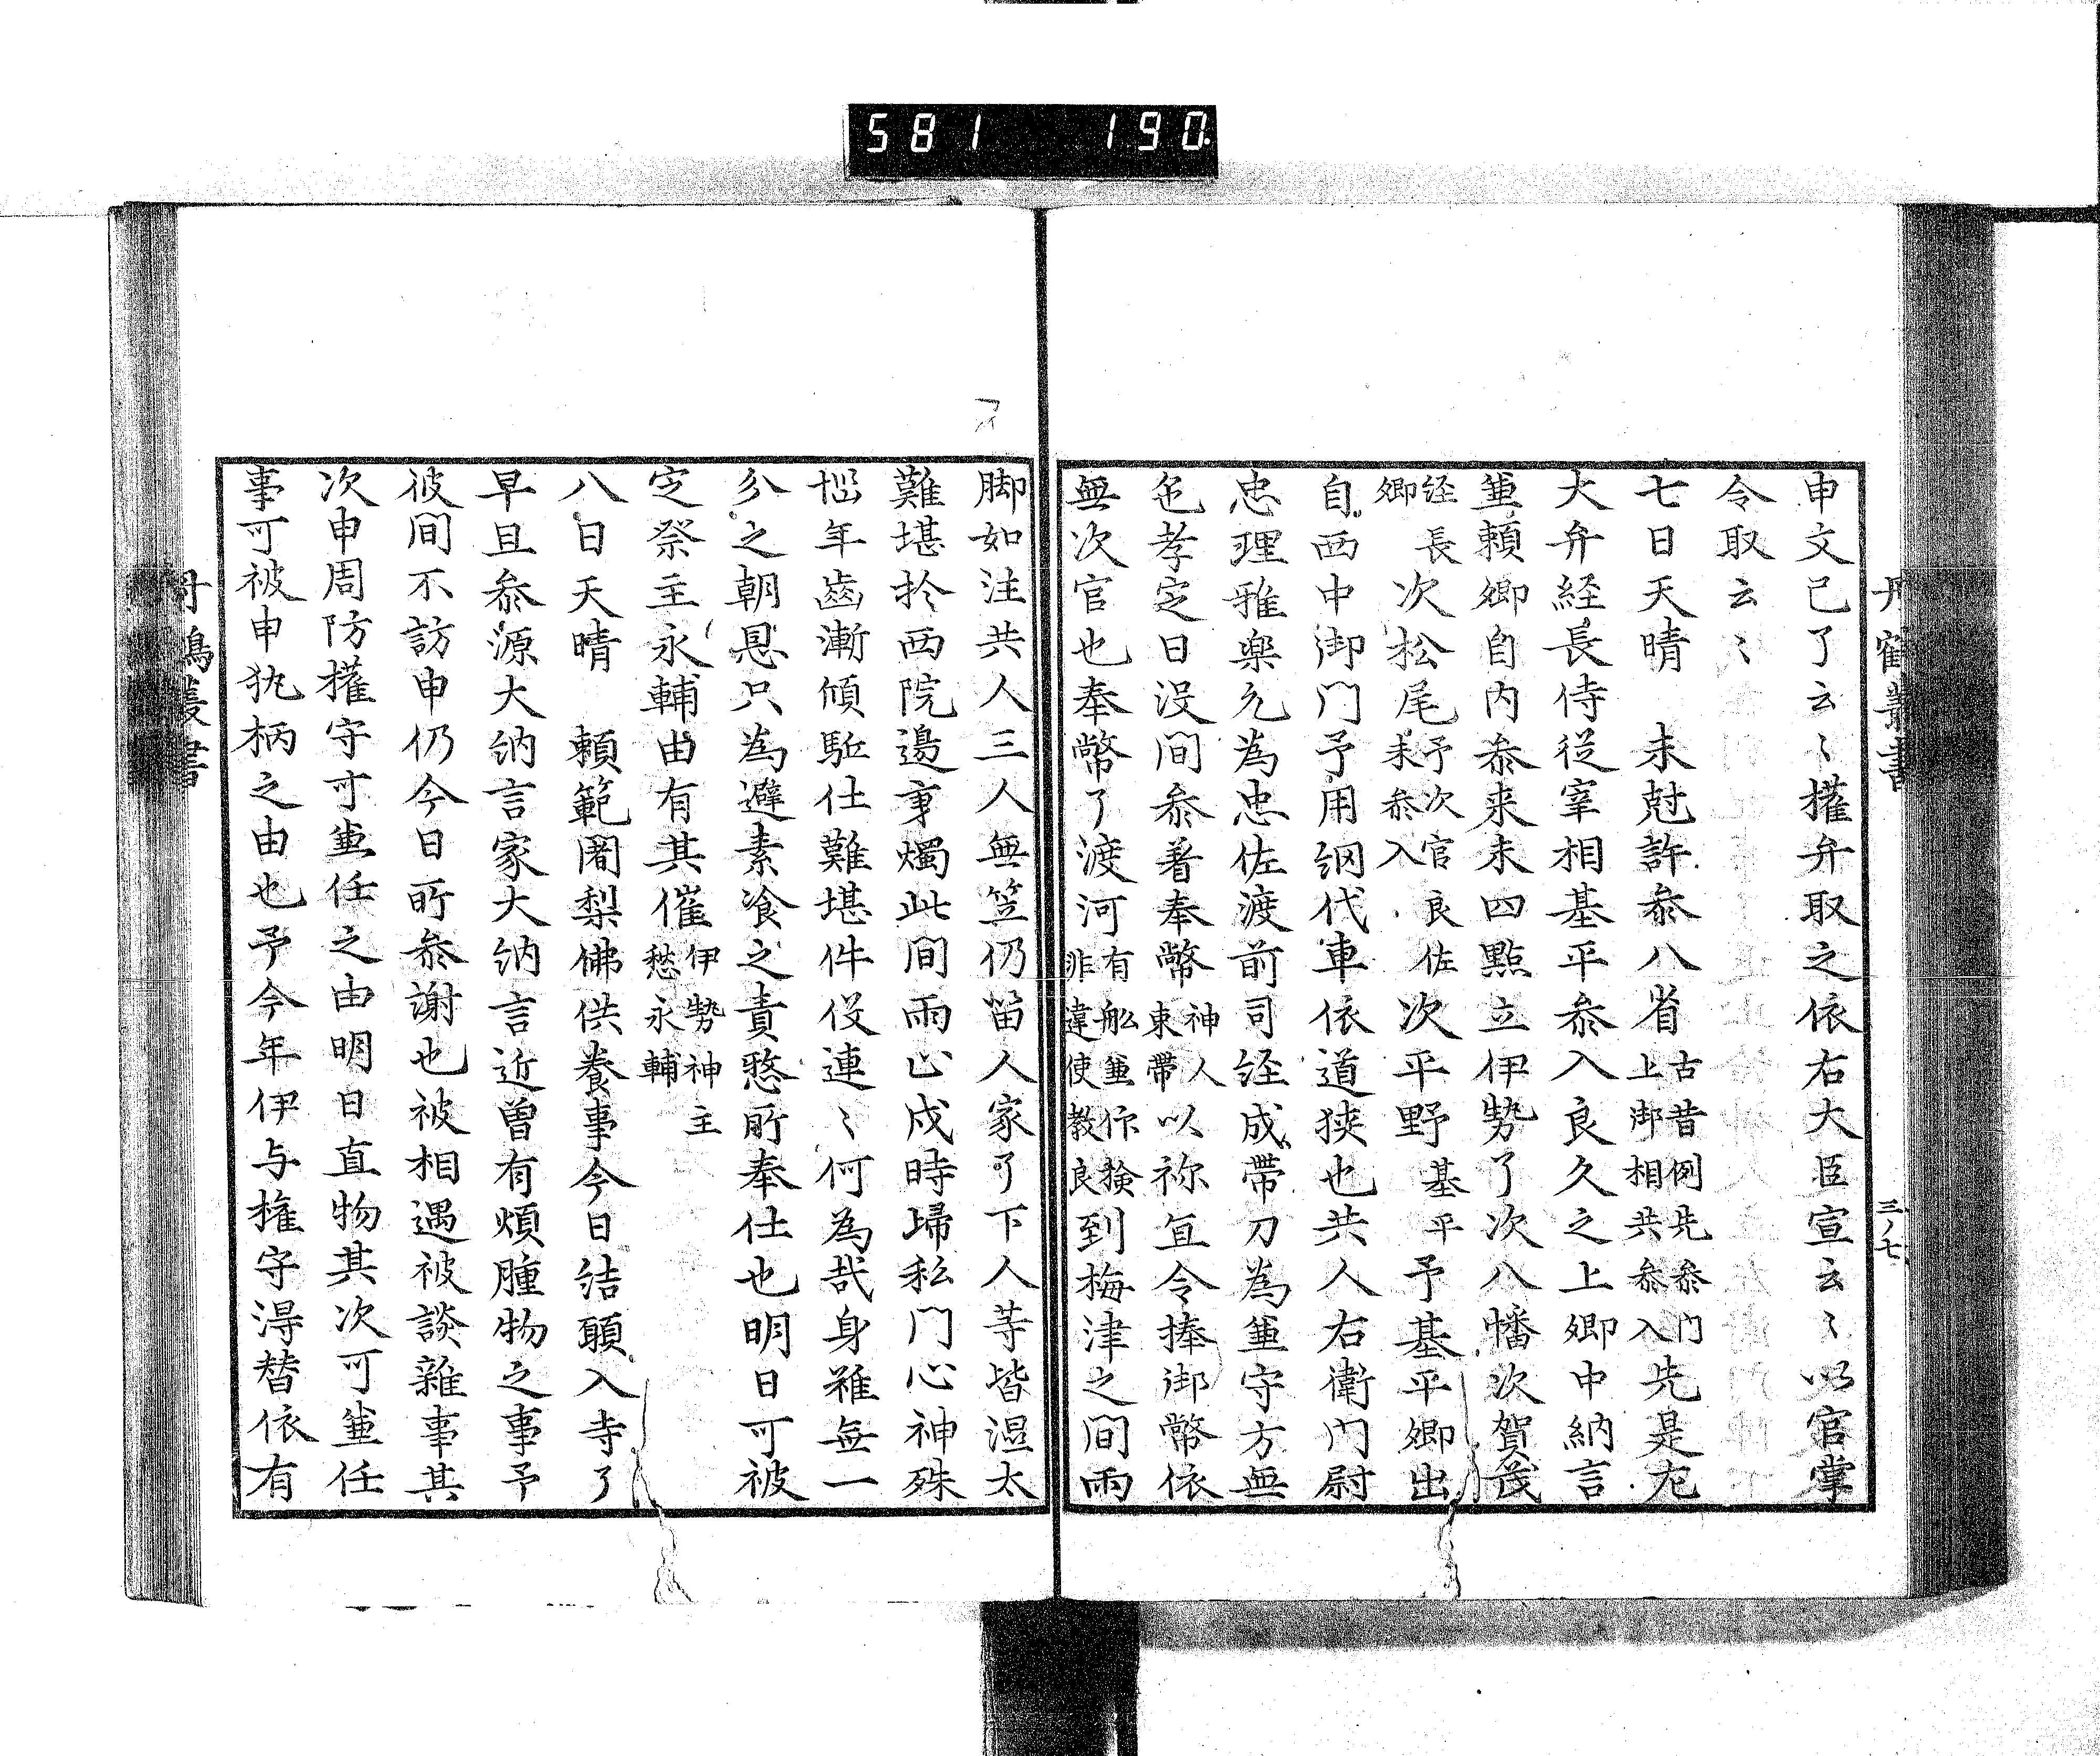 581 190
丹鶴叢書
三ノ七
申文已了云〻権弁取之依右大臣宣云〻以官掌
令取云〻
七日天晴 未尅許参八省古昔例先参門上卿相共参入先是左
大弁経長侍従宰相基平参入良久之上卿中納言
兼頼卿自内参来未四點立伊勢了次八幡次賀茂
経長卿次松尾予次官良佐未参入次平野基平予基平卿出
自西中御門予用網代車依道狭也共人右衛門尉
忠理雅楽允為忠佐渡前司経成帯刀為兼守方無
色孝定日没間参着奉幣神人束帯以祢宜令捧御幣依
無次官也奉幣了渡河有舩兼作検非違使教良到梅津之間雨
脚如注共人三人無笠仍留人家了下人等皆湿太
難堪於西院邊秉燭此間雨止戌時帰私門心神殊
悩年齒漸傾駈仕難堪件役連〻何為哉身雖無一
分之朝恩只為避素飡之責愁所奉仕也明日可被
定祭主永輔由有其催伊勢神主愁永輔
八日天晴 頼範闍梨佛供養事今日結願入寺了
早旦参源大納言家大納言近曽有煩腫物之事予
彼間不訪申仍今日所参謝也被相遇被談雜事其
次申周防権守可兼任之由明日直物其次可兼任
事可被申執柄之由也予今年伊与権守得替依有
丹鶴叢書